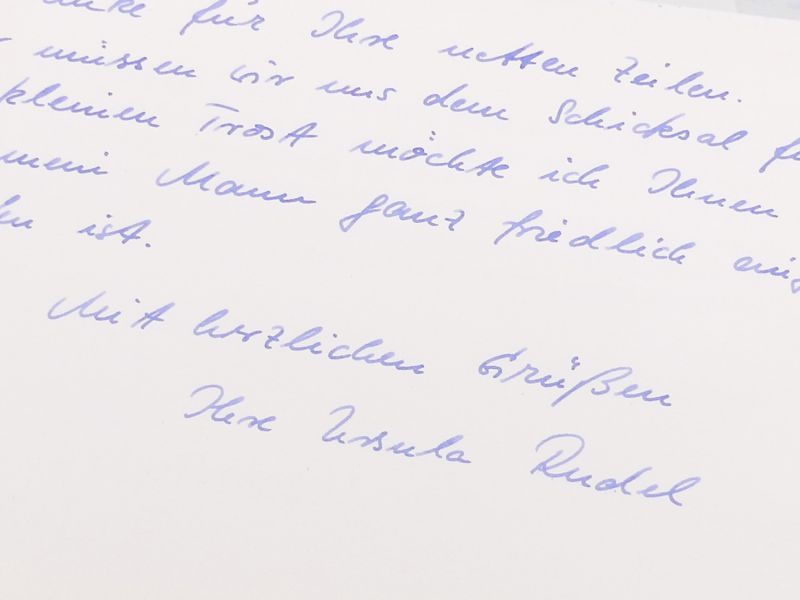 für Ihre netten Zeilen.
müssen wir uns dem Schicksal
kleinen Trost möchte ich Ihnen
mein Mann ganz friedlich
ist.
Mit herzlichen Grüßen
Ihre Ursula Rudel